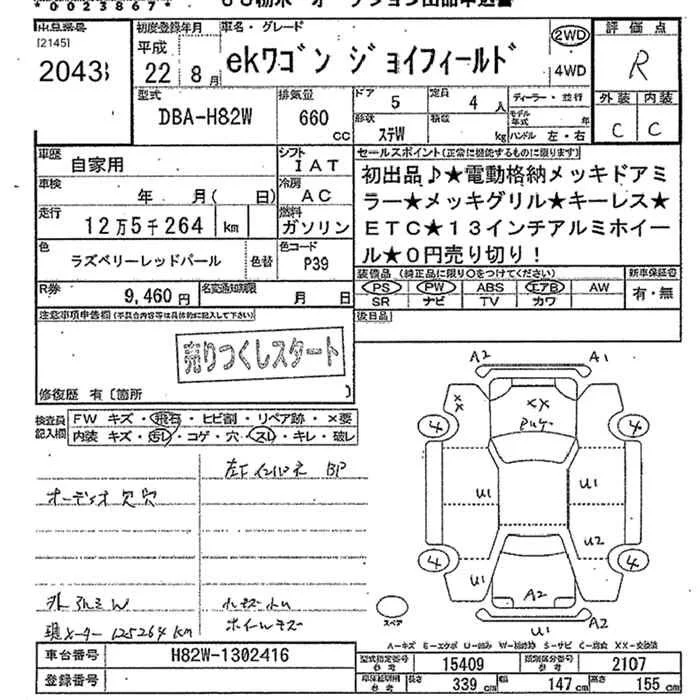 *00238687*
出品番号
[2145]
2043
初度登録年月
平成
22年8月
車名・グレード
ekワゴン ジョイフィールド
2WD
4WD
評価点
R
外装 内装
C C
型式
DBA-H82W
排気量
660
cc
ドア
5
形状
ステW
定員
4人
積載
kg
ディーラー・並行
モデル年式
ハンドル 左・右
車歴
自家用
シフト
IAT
車検
年 月( 日)
冷房
AC
走行
12万5千264 km
燃料
ガソリン
色
ラズベリーレッドパール
色替
色コード
P39
R券
9,460円
名変通知期限
月 日
セールスポイント(正常に機能するものに限ります)
初出品♪★電動格納メッキドアミ
ラー★メッキグリル★キーレス★
ETC★13インチアルミホイー
ル★0円売り切り!
装備品(純正品に限り○をつけてください)
新車保証書
PS PW ABS エアB AW
有・無
SR ナビ TV カワ
後日品
注意事項申告欄(不具合内容等は具体的に記入して下さい)
売りつくしスタート
修復歴 有〔箇所 〕
検査員記入欄
FW キズ・飛石・ヒビ割・リペア跡・×要
内装 キズ・汚レ・コゲ・穴・スレ・キレ・破レ
左F インパネ BP
オーディオ欠穴
外アルミW
ホイールキズ
現メーター125264km
A2 A1
XX
XX
4 4
U1 U1
U2
4 4
U1 A2
U1 A2
スペア
A-キズ E-エクボ U-凹み W-補修跡 S-サビ C-腐食 XX-交換済
車台番号
H82W-1302416
登録番号
型式指定番号
参考
15409
類別区分番号
参考
2107
車体総明細
参考
長さ
339 cm
幅
147 cm
高さ
155 cm